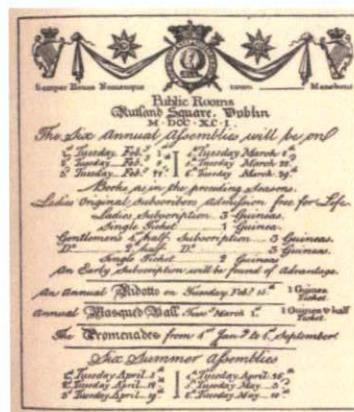 Semper Honos Nomenque tuum Manebunt
Public Rooms
Rutland Square, Dublin
M·DCC·XC·I·
The Six Annual Assemblies will be on
Tuesday Feb.y Tuesday March
Tuesday Feb.y Tuesday March 22
Tuesday Feb.y Tuesday March 29
Books as in the preceding Seasons.
Ladies Original Subscribers Admission free for Life
Ladies Subscription 3 Guineas.
Single Ticket 1 Guinea.
Gentlemen's half Subscription 3 Guineas.
D.o 2.d half D.o 3 Guineas
Single Ticket 2 Guineas
An Early Subscription will be found of Advantage.
An Annual Ridotto on Tuesday Feb.y 15th 1 Guinea Ticket
Annual Masqued Ball Tues.y March 1 Guinea & half Ticket
The Promenades from Jan.y to September
Six Summer Assemblies
Tuesday April Tuesday April 26
Tuesday April 12 Tuesday May 3
Tuesday April 19 Tuesday May 10